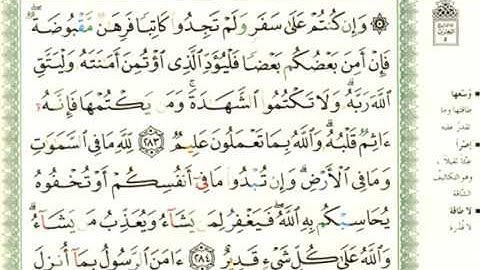 ۞ وَإِن كُنتُمْ عَلَىٰ سَفَرٍ وَلَمْ تَجِدُوا۟ كَاتِبًا فَرِهَـٰنٌ مَّقْبُوضَةٌ
فَإِنْ أَمِنَ بَعْضُكُم بَعْضًا فَلْيُؤَدِّ ٱلَّذِى ٱؤْتُمِنَ أَمَـٰنَتَهُۥ وَلْيَتَّقِ
ٱللَّهَ رَبَّهُۥ وَلَا تَكْتُمُوا۟ ٱلشَّهَـٰدَةَ وَمَن يَكْتُمْهَا فَإِنَّهُۥٓ
ءَاثِمٌ قَلْبُهُۥ وَٱللَّهُ بِمَا تَعْمَلُونَ عَلِيمٌ ٢٨٣ لِّلَّهِ مَا فِى ٱلسَّمَـٰوَٰتِ
وَمَا فِى ٱلْأَرْضِ وَإِن تُبْدُوا۟ مَا فِىٓ أَنفُسِكُمْ أَوْ تُخْفُوهُ
يُحَاسِبْكُم بِهِ ٱللَّهُ فَيَغْفِرُ لِمَن يَشَآءُ وَيُعَذِّبُ مَن يَشَآءُ
وَٱللَّهُ عَلَىٰ كُلِّ شَىْءٍ قَدِيرٌ ٢٨٤ ءَامَنَ ٱلرَّسُولُ بِمَآ أُنزِلَ
وُسْعَها
طاقتها وما
تقدر عليه
إصْراً
وهو التكاليف
الشاقة
لا طاقة
لا قدرة